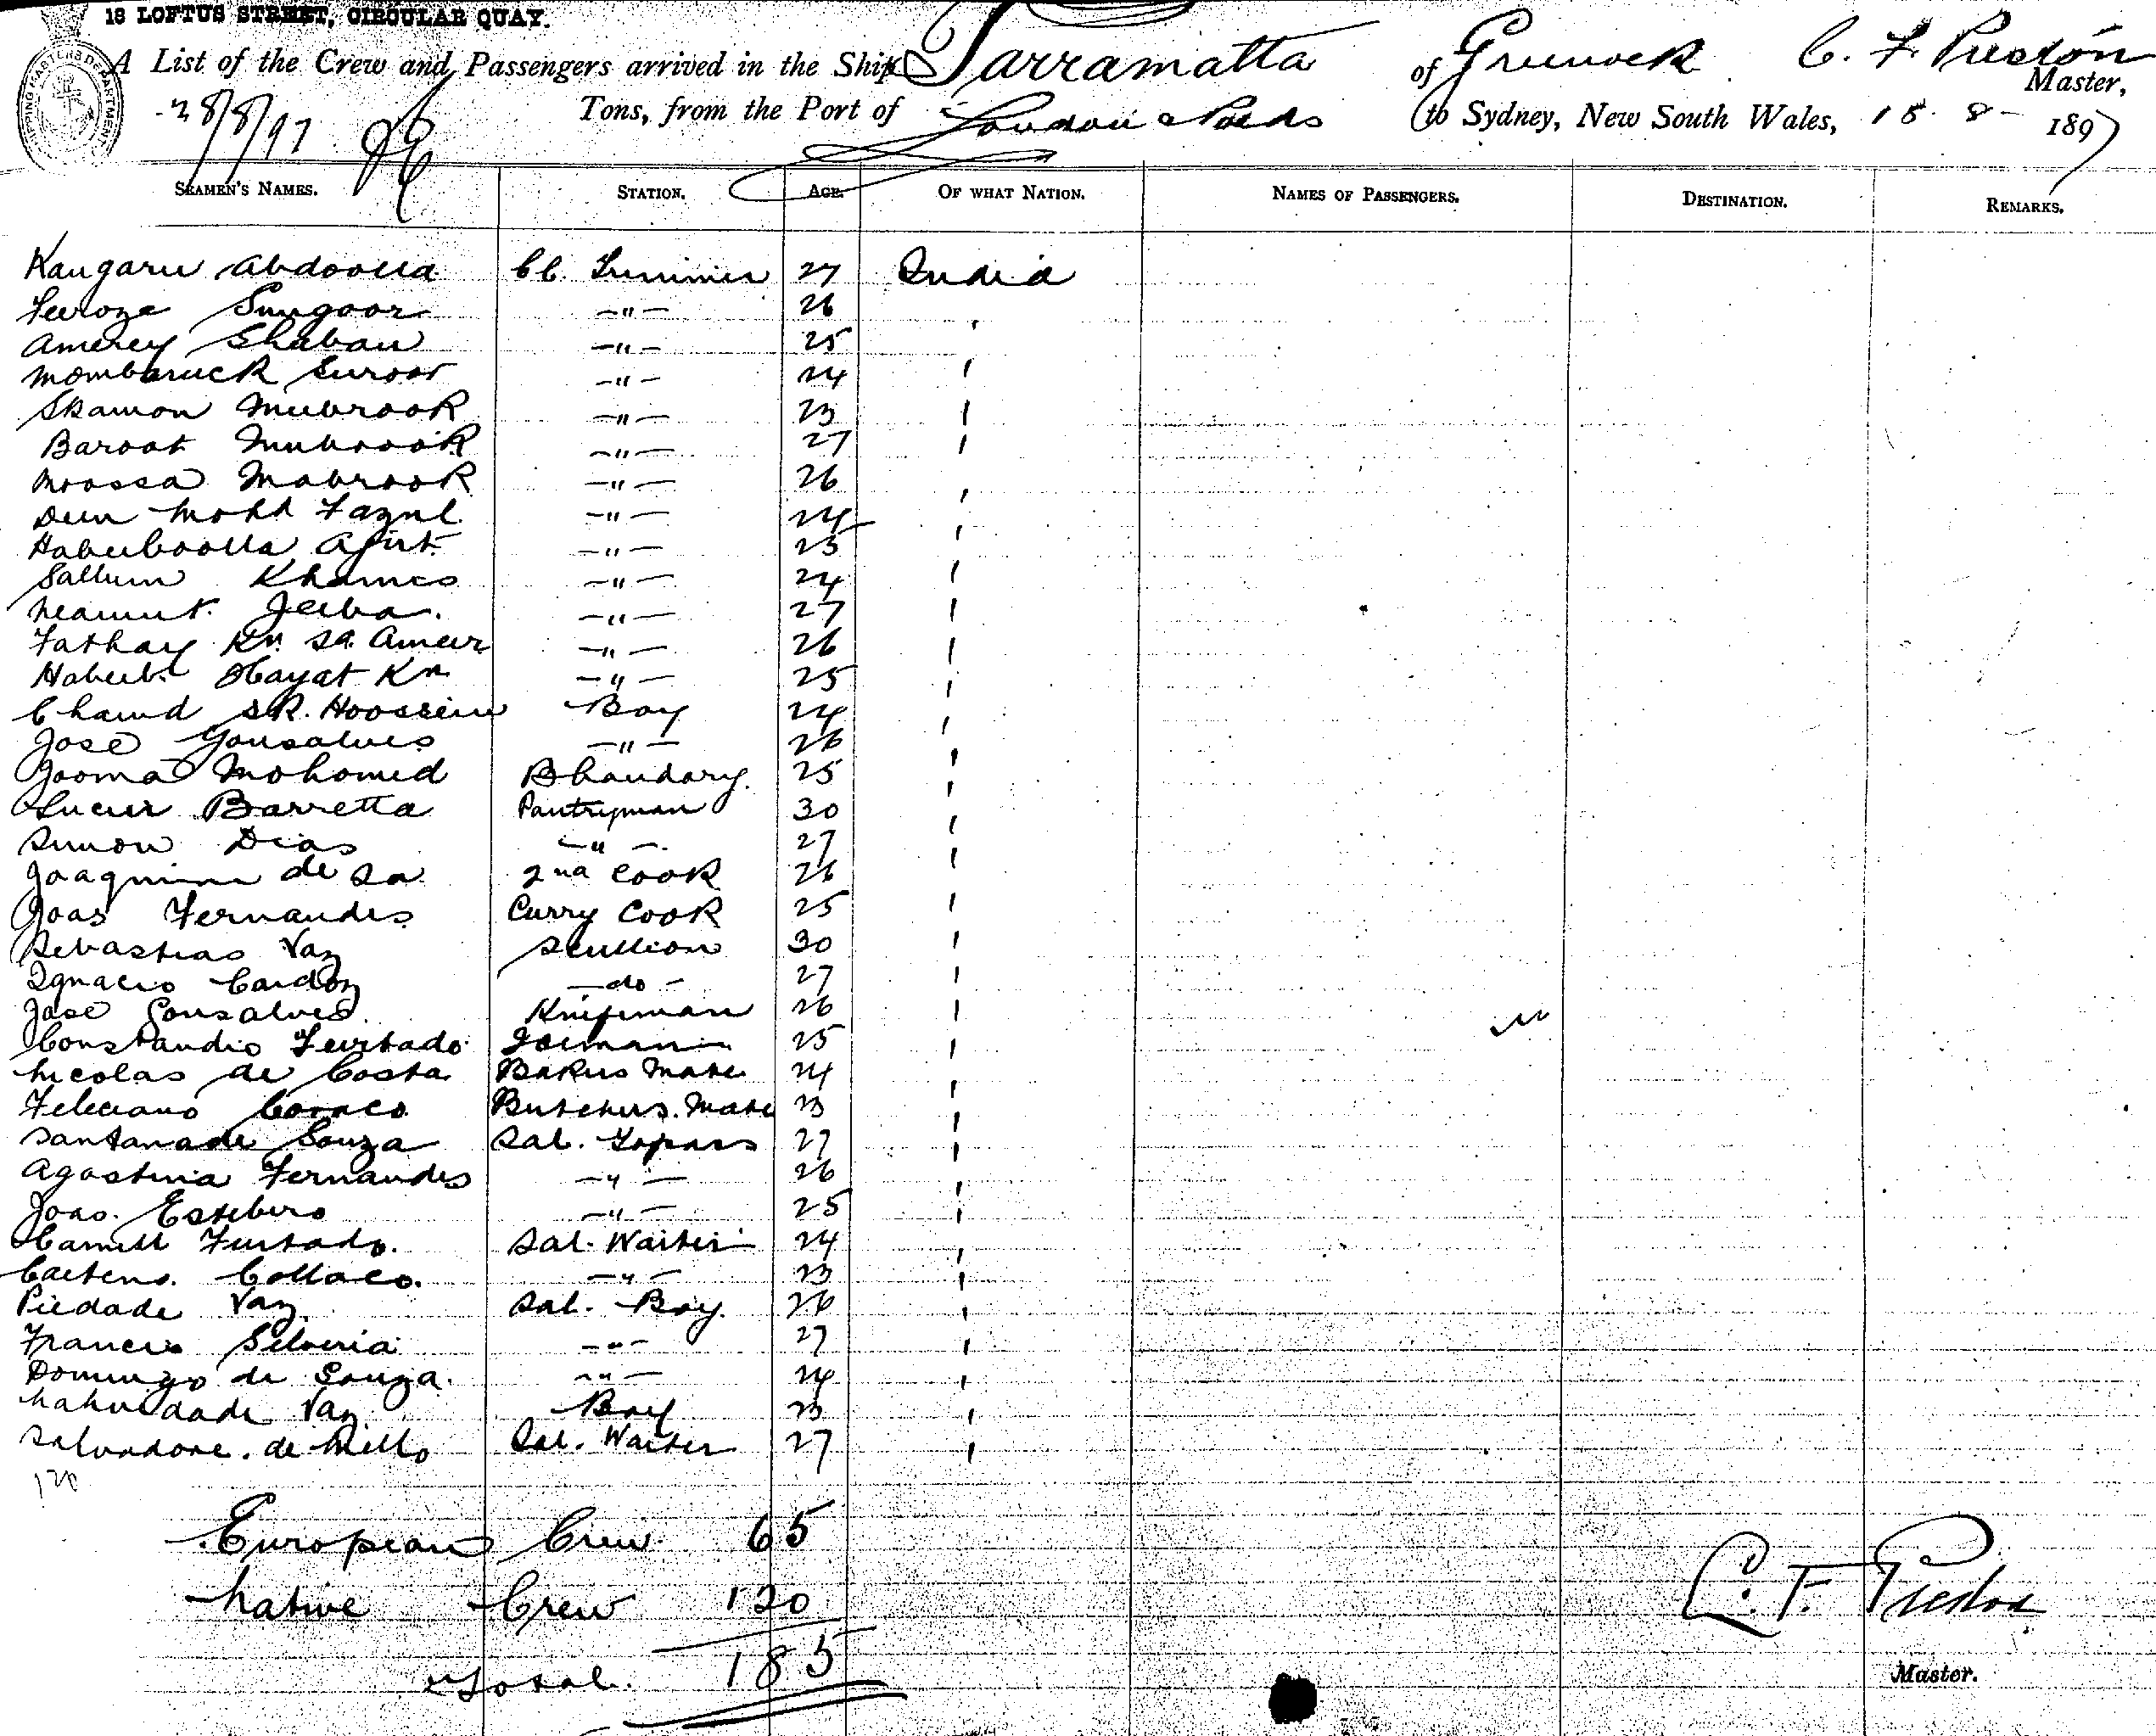 18 LOFTUS STREET, CIRCULAR QUAY.
A List of the Crew and Passengers arrived in the Ship Parramatta of Greenock C. F. Preston Master,
28/8/97 Tons, from the Port of London & Ports to Sydney, New South Wales, 15 - 8 - 1897
SEAMEN'S NAMES. STATION. AGE. OF WHAT NATION. NAMES OF PASSENGERS. DESTINATION. REMARKS.
Kangaru Abdoolla 27 India
Feeroze Sungoor -"- 26
Amerey Shaban -"- 25
Mombaruck Suroor -"- 24
Shamon Mubrook -"- 23
Baroot Mubrook -"- 27
Moossa Mabrook -"- 26
Deen Mohd Fazul -"- 24
Habeeboolla -"- 25
Sallum Khamis -"- 24
Neamut Jeeba. -"- 27
Fathay Kn. Sa. Ameer -"- 26
Habeeb Hayat Kn -"- 25
Chand SK. Hoossein Boy 24
Jose Gonsalves -"- 26
Jooma Mohomed Bhandary. 25
Barretta Pantryman 30
Simon Dias -"- 27
Joaquim de Sa 2nd Cook 26
Joas Fernandes Curry Cook 25
Sebastiao Vaz Scullion 30
Ignacio Cardoz - do - 27
Jose Gonsalves Knifeman 26
Constandio Furtado 25
Nicolas de Costa Bakers Mate 24
Feleciano Butchers. Mate 23
Santana de Souza Sal. Topass 27
Agostinia Fernandes -"- 26
Joao. Estebero -"- 25
Camill Furtado. Sal. Waiter 24
Caetano. Collaco. -"- 23
Piedade Vaz Sal. Boy. 26
Francis Silveria -"- 27
Domingo de Souza. -"- 24
Vaz. Boy 23
Salvadore. de Mello Sal. Waiter 27
120
European Crew 65
Native Crew 120
Total. 185
C. F. Preston
Master.